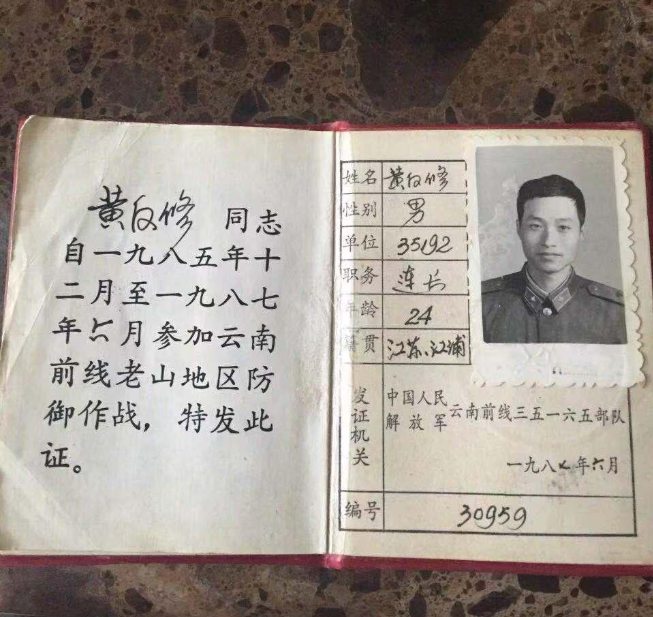 黄反修 同志
自一九八五年十
二月至一九八七
年六月参加云南
前线老山地区防
御作战，特发此
证。
姓名 黄反修
性别 男
单位 35192
职务 连长
年龄 24
籍贯 江苏、江浦
发证机关 中国人民解放军 云南前线三五一六五部队
一九八七年六月
编号 30959